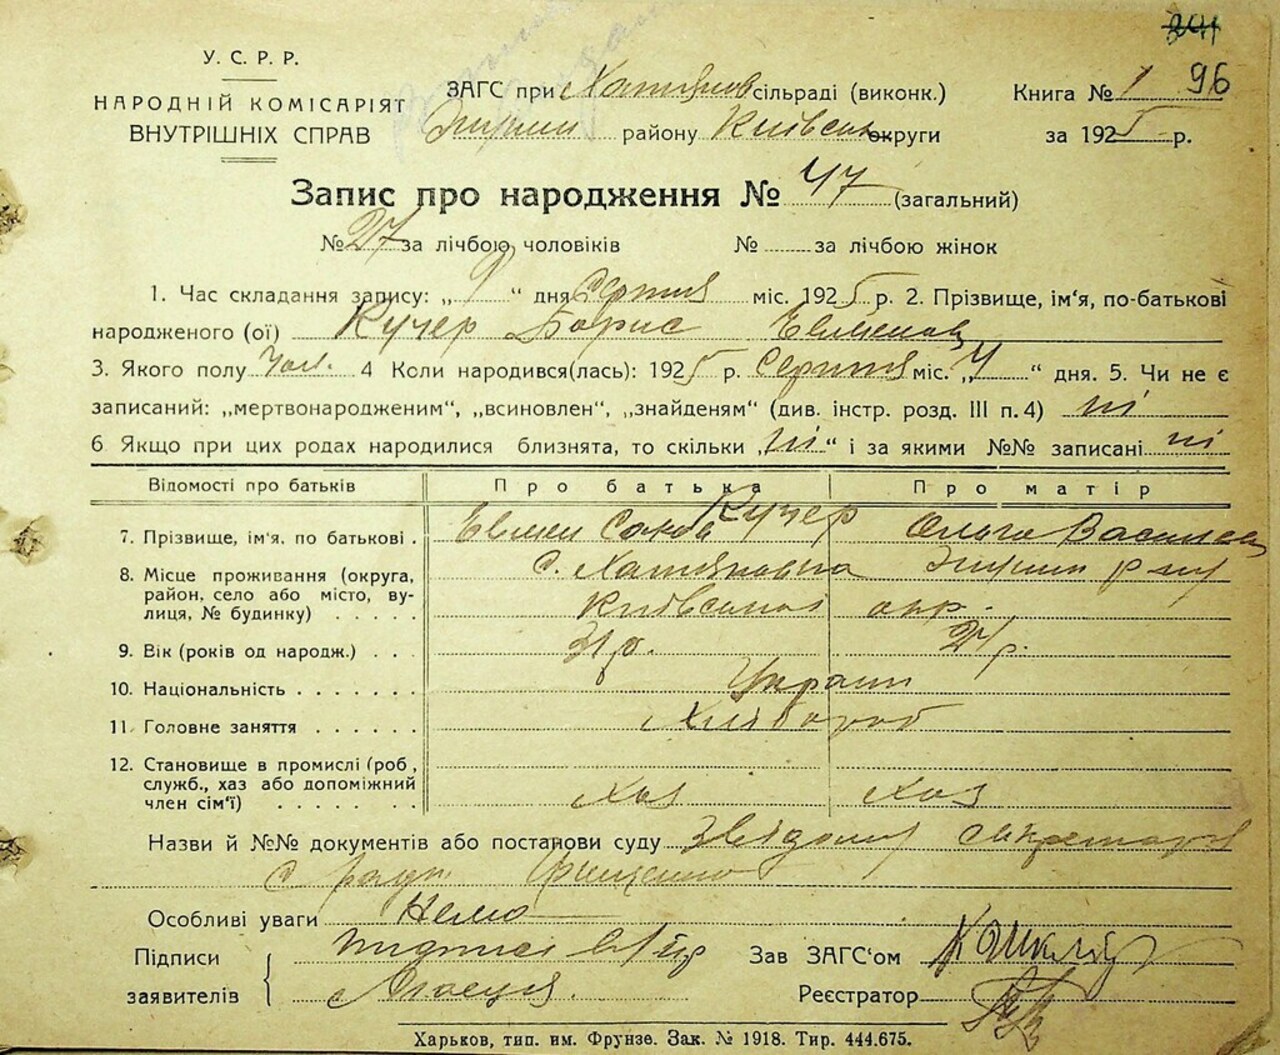 У. С. Р. Р.
НАРОДНІЙ КОМІСАРІЯТ
ВНУТРІШНІХ СПРАВ
ЗАГС при Хотянов сільраді (виконк.)
району Київськ округи
Книга № 1 96
за 1925 р.
Запис про народження № 47 (загальний)
№ 27 за лічбою чоловіків № за лічбою жінок
1. Час складання запису: „9“ дня Серпня міс. 1925 р. 2. Прізвище, ім'я, по-батькові
народженого (ої) Кучер Борис Евменов
3. Якого полу Чол. 4 Коли народився(лась): 1925 р. Серпня міс. „4“ дня. 5. Чи не є
записаний: „мертвонародженим“, „всиновлен“, „знайденям“ (див. інстр. розд. III п. 4) ні
6 Якщо при цих родах народилися близнята, то скільки „ні“ і за якими №№ записані ні
Відомості про батьків Про батька Про матір
7. Прізвище, ім'я, по батькові . Евмен Кучер Ольга Василев
8. Місце проживання (округа, с. Хотяновка
район, село або місто, ву-
лиця, № будинку) . . . . . Київської окр.
9. Вік (років од народж.) . . . 31 р. 24 р.
10. Національність . . . . . . . Украин
11. Головне заняття . . . . . . Хлібороб
12. Становище в промислі (роб,
служб., хаз або допоміжний
член сім'ї) . . . . . . . Хаз Хаз
Назви й №№ документів або постанови суду Звідомл секретаря
с ради Грищенко
Особливі уваги Нема
Підписи
заявителів
Зав ЗАГС'ом
Реєстратор
Харьков, тип. им. Фрунзе. Зак. № 1918. Тир. 444.675.